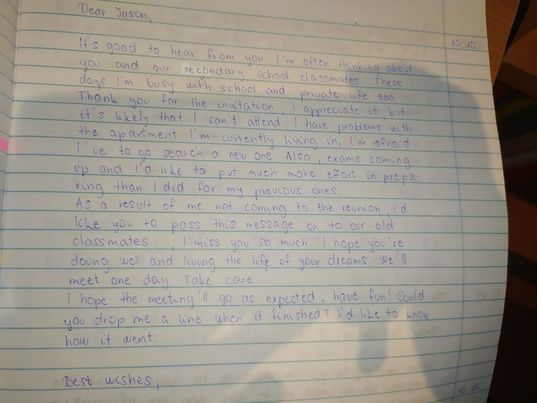 Dear Jason,
It's good to hear from you. I'm often thinking about
you and our secondary school classmates. These
days I'm busy with school and private life too.
Thank you for the invitation, I appreciate it, but
it's likely that I can't attend. I have problems with
the apartment I'm currently living in, I'm afraid
I've to go search a new one. Also, exams coming
up and I'd like to put much more effort in prepa-
ring than I did for my previous ones.
As a result of me not coming to the reunion, I'd
like you to pass this message on to our old
classmates: I miss you so much. I hope you're
doing well and living the life of your dreams. We'll
meet one day. Take care.
I hope the meeting'll go as expected, have fun! Could
you drop me a line when it finished? I'd like to know
how it went.
Best wishes,